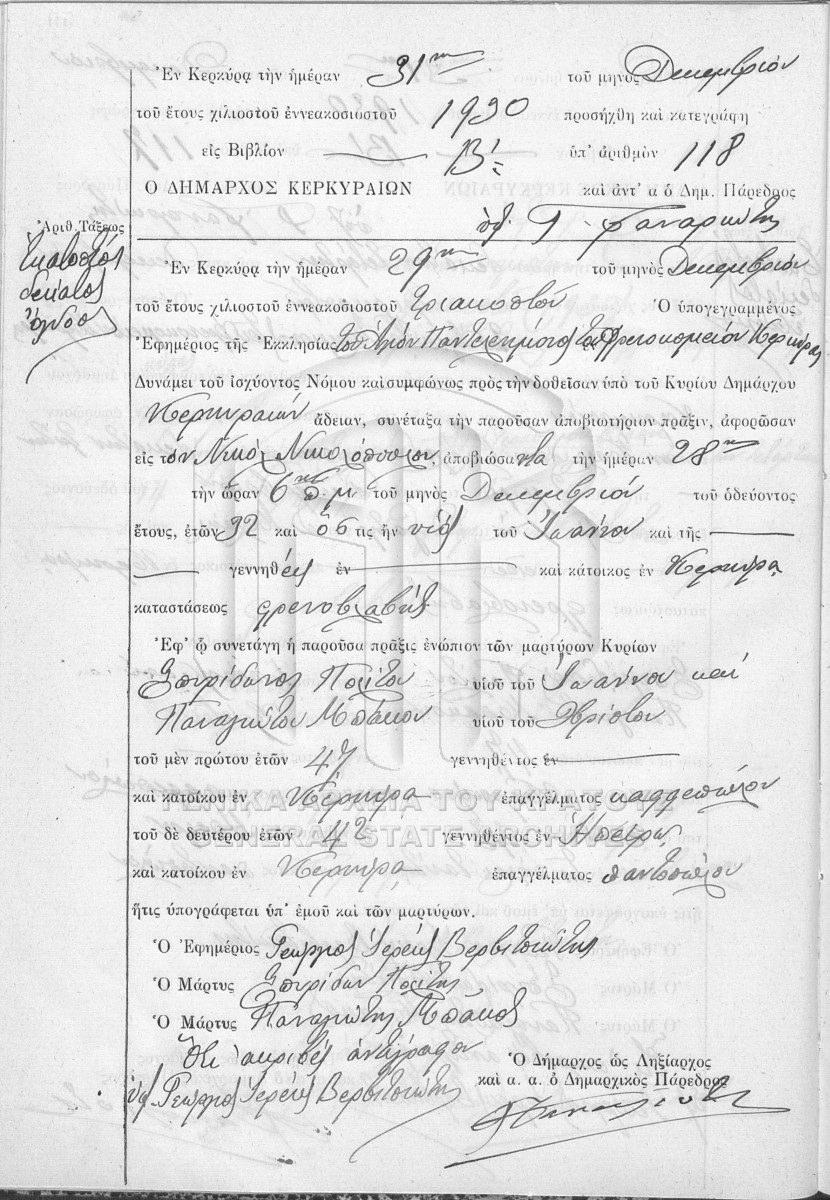 Ἐν Κερκύρᾳ τὴν ἡμέραν 31ην τοῦ μηνὸς Δεκεμβρίου
τοῦ ἔτους χιλιοστοῦ ἐννεακοσιοστοῦ 1930 προσήχθη καὶ κατεγράφη
εἰς Βιβλίον Β' ὑπ' ἀριθμὸν 118
Ο ΔΗΜΑΡΧΟΣ ΚΕΡΚΥΡΑΙΩΝ καὶ ἀντ' α ὁ Δημ. Πάρεδρος
Ἀριθ. Τάξεως
Ἑκατοστὸς
δέκατος
ὄγδοος
Ἐν Κερκύρᾳ τὴν ἡμέραν 29ην τοῦ μηνὸς Δεκεμβρίου
τοῦ ἔτους χιλιοστοῦ ἐννεακοσιοστοῦ τριακοστοῦ Ὁ ὑπογεγραμμένος
Ἐφημέριος τῆς Ἐκκλησίας τοῦ Ἁγίου Παντελεήμονος τοῦ Φρενοκομείου Κερκύρας
Δυνάμει τοῦ ἰσχύοντος Νόμου καὶ συμφώνως πρὸς τὴν δοθεῖσαν ὑπὸ τοῦ Κυρίου Δημάρχου
Κερκυραίων ἄδειαν, συνέταξα τὴν παροῦσαν ἀποβιωτήριον πρᾶξιν, ἀφορῶσαν
εἰς τὸν Νικόλ. Νικολόπουλον, ἀποβιώσαντα τὴν ἡμέραν 28ην
τὴν ὥραν 6ην π.μ τοῦ μηνὸς Δεκεμβρίου τοῦ ὁδεύοντος
ἔτους, ἐτῶν 32 καὶ ὅστις ἦν υἱὸς τοῦ Ἰωάννου καὶ τῆς
γεννηθεὶς ἐν καὶ κάτοικος ἐν Κερκύρᾳ
καταστάσεως φρενοβλαβής
Ἐφ' ᾧ συνετάγη ἡ παροῦσα πρᾶξις ἐνώπιον τῶν μαρτύρων Κυρίων
Σπυρίδωνος Πολίτου υἱοῦ τοῦ Ἰωάννου καὶ
Παναγιώτου Μπάκου υἱοῦ τοῦ Χρίστου
τοῦ μὲν πρώτου ἐτῶν 47 γεννηθέντος ἐν
καὶ κατοίκου ἐν Κέρκυρα ἐπαγγέλματος καφφεπώλου
τοῦ δὲ δευτέρου ἐτῶν 42 γεννηθέντος ἐν Ἠπείρῳ
ΓΕΝΙΚΑ ΑΡΧΕΙΑ ΤΟΥ ΚΡΑΤΟΥΣ
GENERAL STATE ARCHIVES
καὶ κατοίκου ἐν Κερκύρᾳ ἐπαγγέλματος παντοπώλου
ἥτις ὑπογράφεται ὑπ' ἐμοῦ καὶ τῶν μαρτύρων.
Ὁ Ἐφημέριος Γεώργιος Ἱερεὺς Βερβιτσιώτης
Ὁ Μάρτυς Σπυρίδων Πολίτης
Ὁ Μάρτυς Παναγιώτης Μπάκος
Ὅτι ἀκριβὲς ἀντίγραφον
Ὁ Δήμαρχος ὡς Ληξίαρχος
καὶ α. α. ὁ Δημαρχικὸς Πάρεδρος
ὑπ. Γεώργιος Ἱερεὺς Βερβιτσιώτης